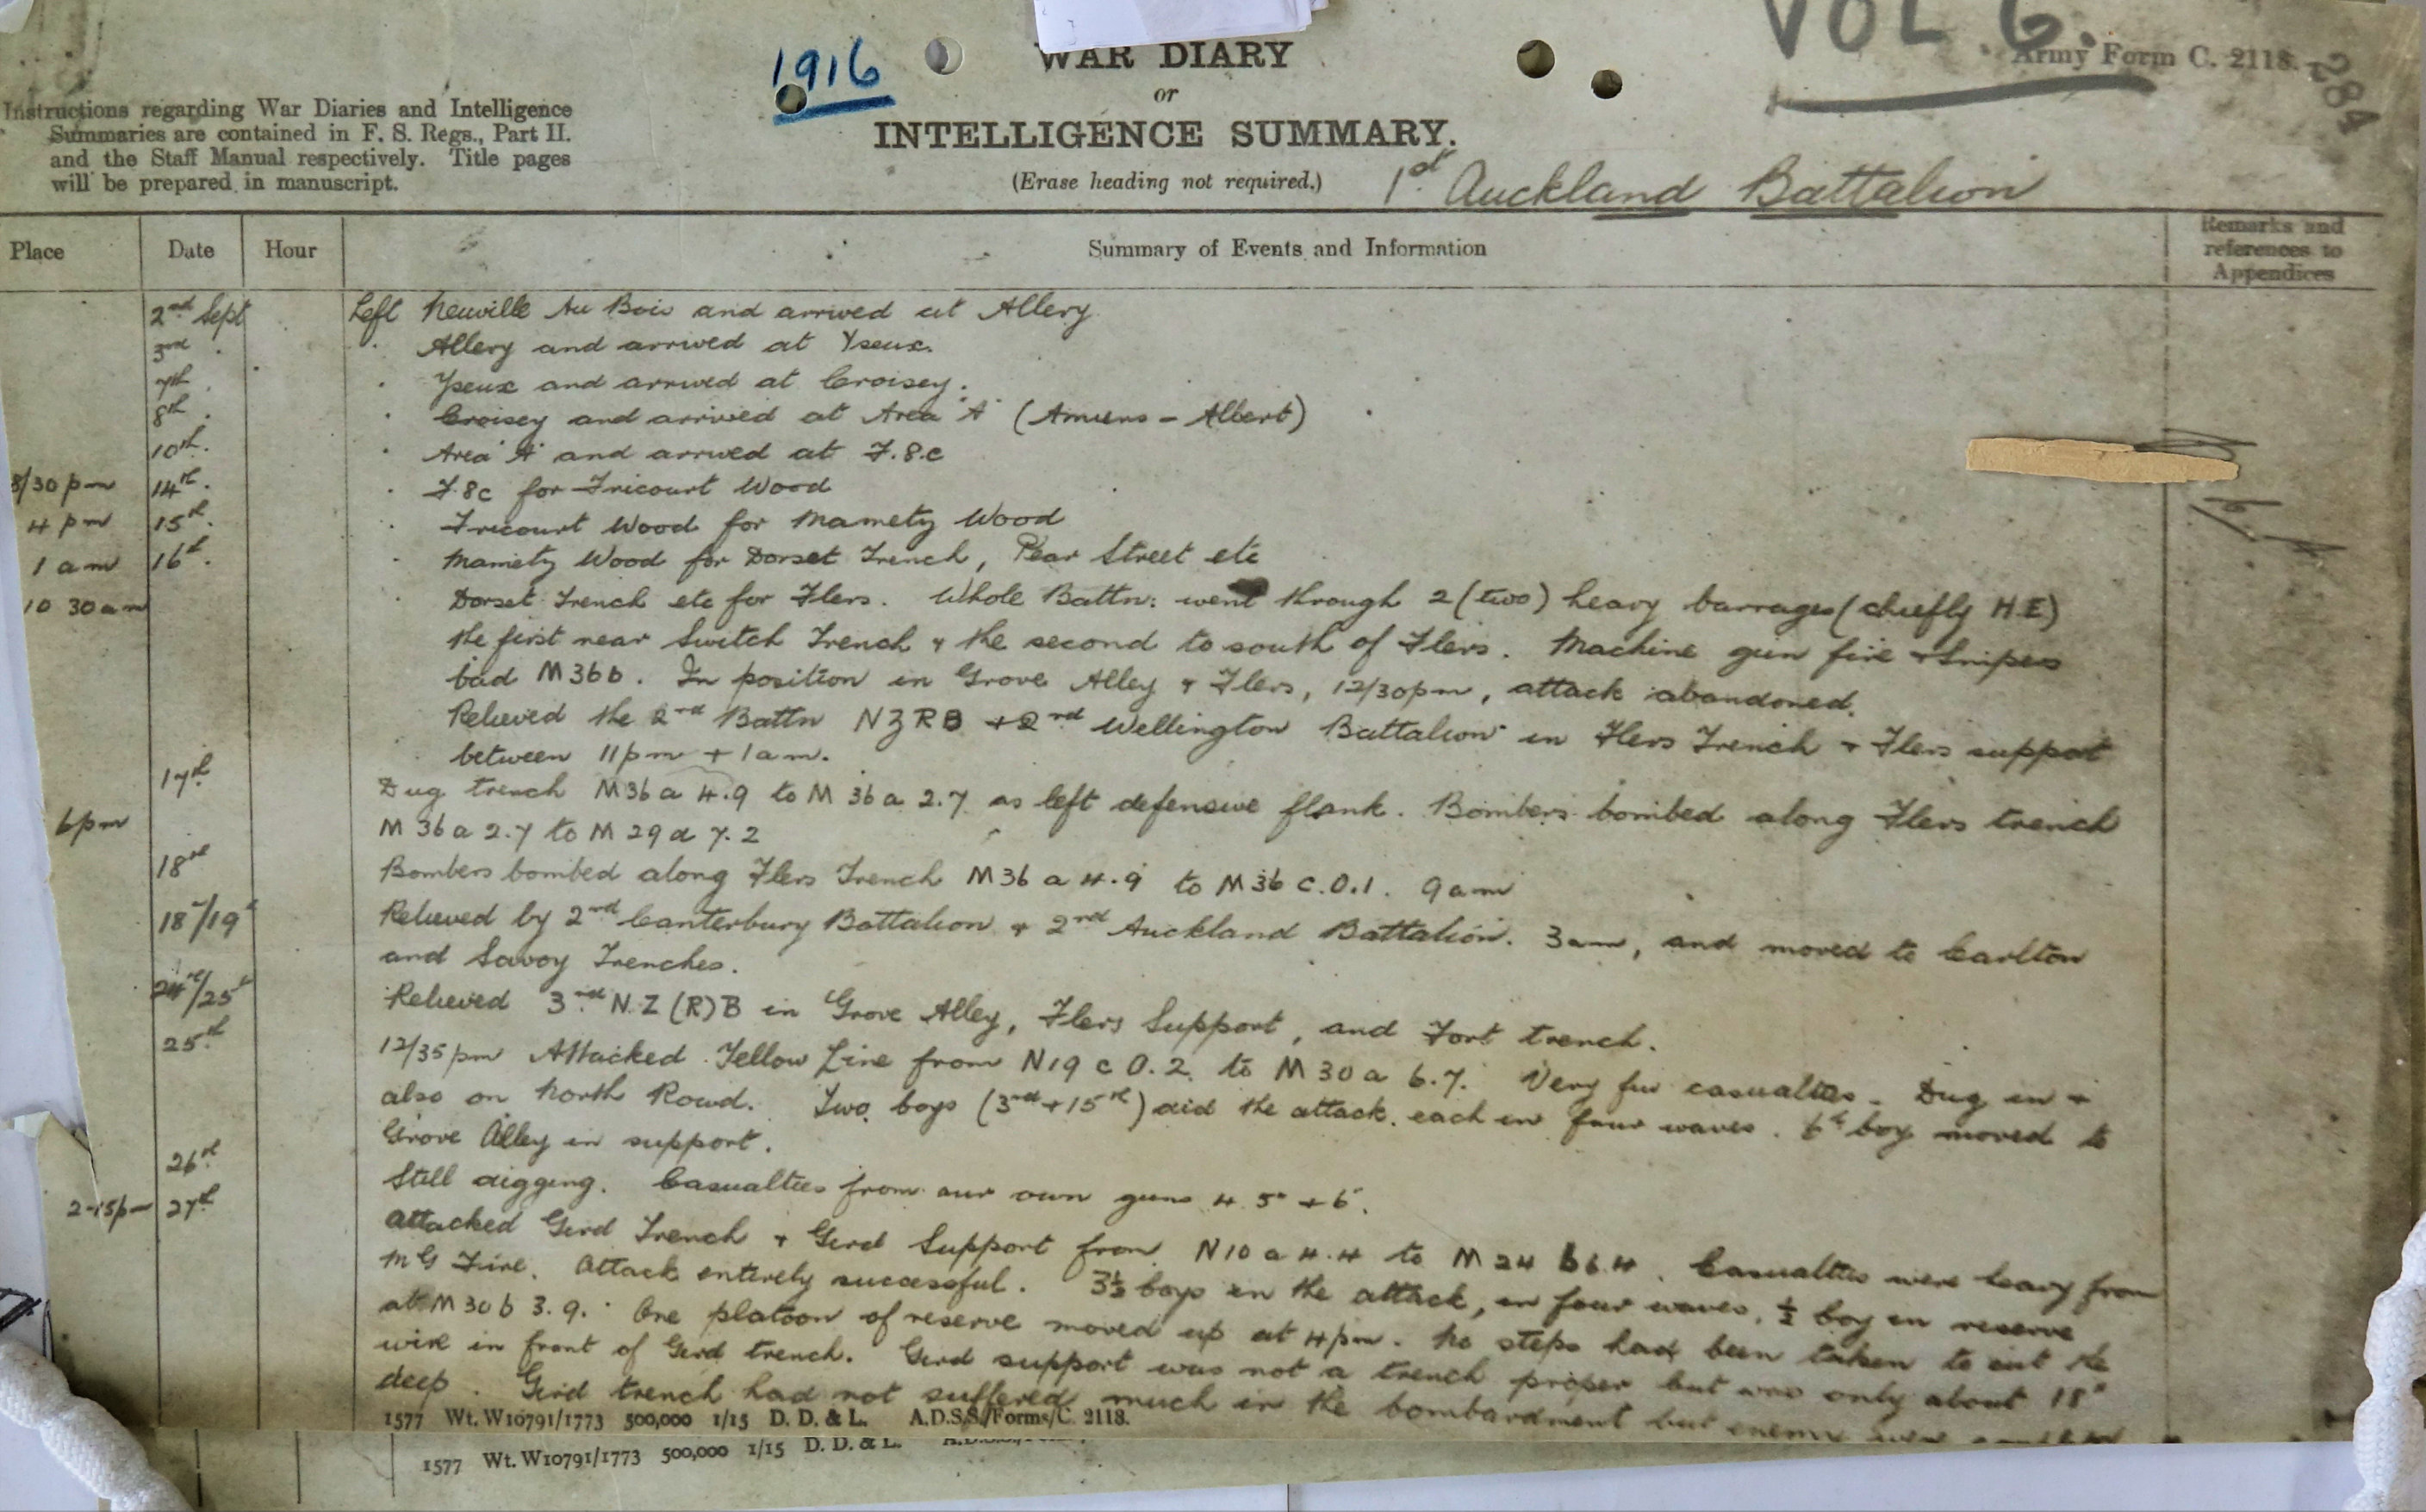 1916
WAR DIARY
or
INTELLIGENCE SUMMARY.
(Erase heading not required.)
VOL 6.
Army Form C. 2118.
284
Instructions regarding War Diaries and Intelligence
Summaries are contained in F. S. Regs., Part II.
and the Staff Manual respectively. Title pages
will be prepared in manuscript.
1st Auckland Battalion
Place Date Hour Summary of Events and Information Remarks and
references to
Appendices
2nd Sept Left Neuville Au Bois and arrived at Allery
3rd . " Allery and arrived at Yseux.
7th . " Yseux and arrived at Croisey.
8th . " Croisey and arrived at Area "A" (Amiens - Albert)
10th . " Area "A" and arrived at F.8.c
8/30 pm 14th . " F.8c for Fricourt Wood
4 pm 15th . " Fricourt Wood for Mametz Wood
1 am 16th . " Mametz Wood for Dorset Trench, Pear Street etc
10 30am " Dorset Trench etc for Flers. Whole Battn: went through 2 (two) heavy barrages (chiefly H.E)
the first near Switch Trench & the second to south of Flers. Machine gun fire & Snipers
bad M36b. In position in Grove Alley & Flers, 12/30pm, attack abandoned.
Relieved the 2nd Battn NZRB + 2nd Wellington Battalion in Flers Trench & Flers support
between 11pm + 1am.
17th Dug trench M36a 4.9 to M36a 2.7 as left defensive flank. Bombers bombed along Flers trench
6pm M36a 2.7 to M29d 7.2
18th Bombers bombed along Flers Trench M36a 4.9 to M36c.0.1. 9am
18th/19th Relieved by 2nd Canterbury Battalion & 2nd Auckland Battalion. 3am, and moved to Carlton
and Savoy Trenches.
24th/25th Relieved 3rd N.Z (R)B in Grove Alley, Flers Support, and Fort trench.
25th 12/35pm Attacked Yellow Line from N19c 0.2. to M30a 6.7. Very few casualties. Dug in &
also on North Road. Two Coys (3rd + 15th) did the attack, each in four waves. 6th Coy moved to
Grove Alley in support.
26th Still digging. Casualties from our own guns 4.5" + 6".
2-15pm 27th Attacked Gird Trench & Gird Support from N10a 4.4 to M24 b6.4. Casualties were heavy from
MG Fire. Attack entirely successful. 3½ Coys in the attack, in four waves, ½ Coy in reserve
at M30b 3.9. One platoon of reserve moved up at 4pm. No steps had been taken to cut the
wire in front of Gird trench. Gird support was not a trench proper but was only about 18"
deep. Gird trench had not suffered much in the bombardment but enemy were
1577 Wt. W10791/1773 500,000 1/15 D. D. & L. A.D.S.S./Forms/C. 2118.
1577 Wt. W10791/1773 500,000 1/15 D. D. & L.